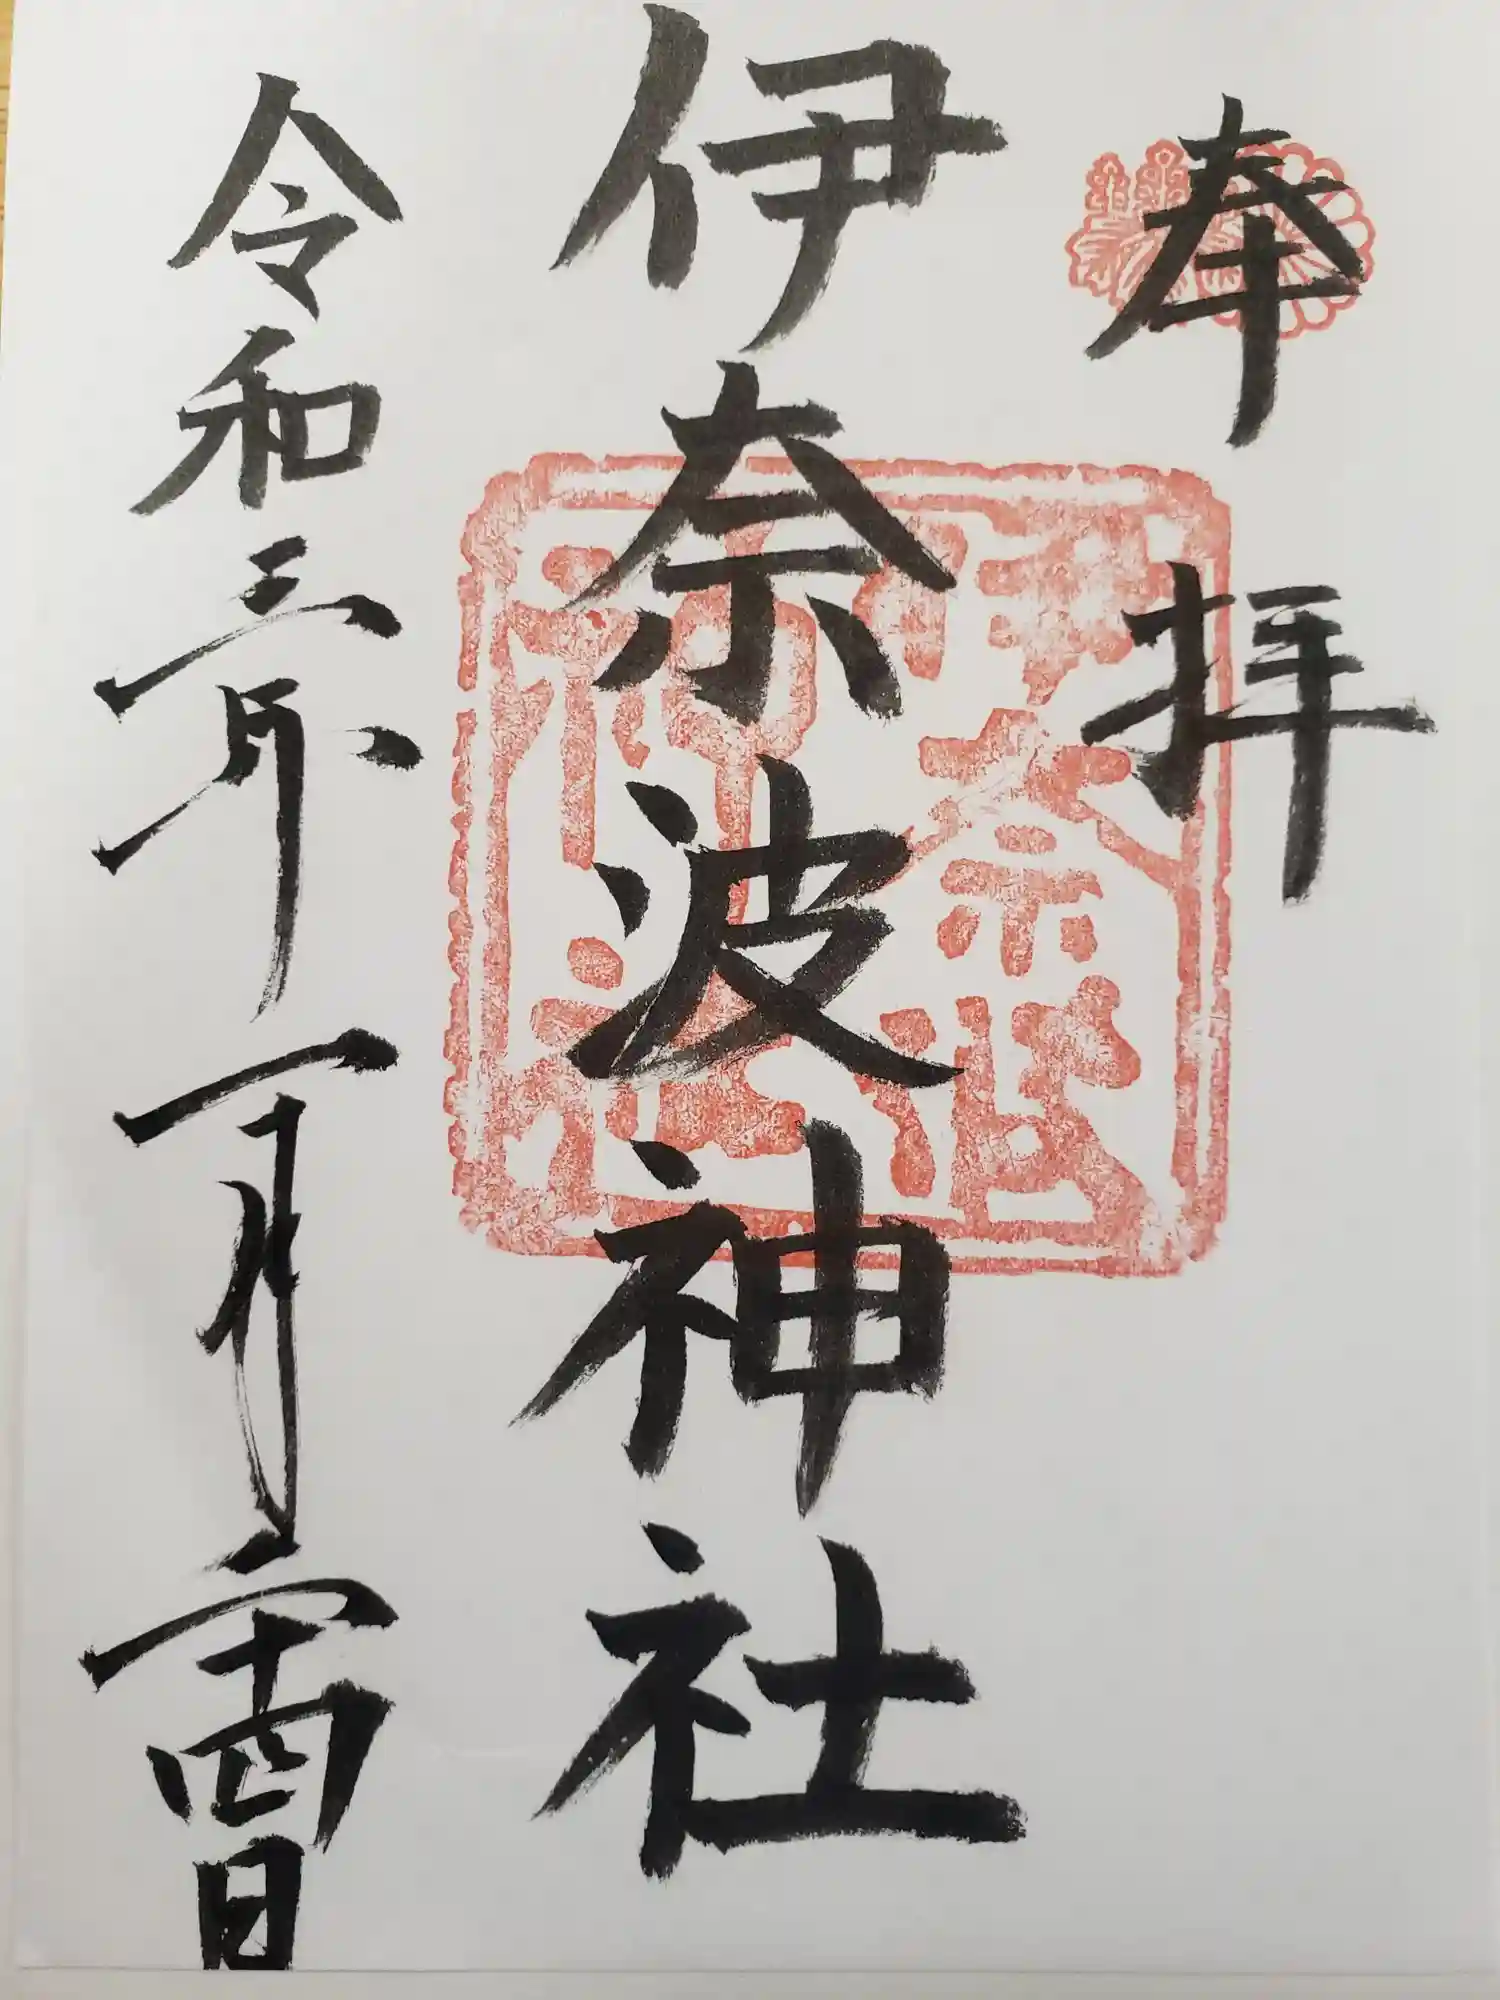 奉拝
伊奈波神社
令和三年一月二十四日
伊奈波
神社